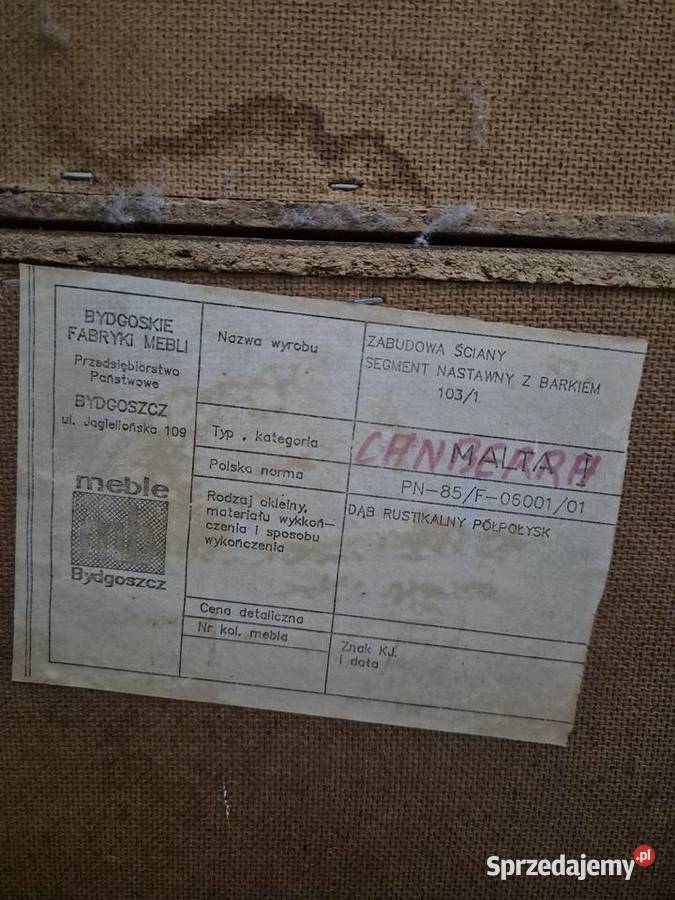 BYDGOSKIE
FABRYKI MEBLI
Przedsiębiorstwo
Państwowe
BYDGOSZCZ
ul. Jagiellońska 109
meble
Bydgoszcz
Nazwa wyrobu
ZABUDOWA ŚCIANY
SEGMENT NASTAWNY Z BARKIEM
103/1
Typ, kategoria
MALTA I
CANBERRA
Polska norma
PN-85/F-06001/01
Rodzaj okleiny,
materiału wykkoń-
czenia i sposobu
wykończenia
DĄB RUSTIKALNY PÓŁPOŁYSK
Cena detaliczna
Nr kol. mebla
Znak KJ.
i data
Sprzedajemy.pl